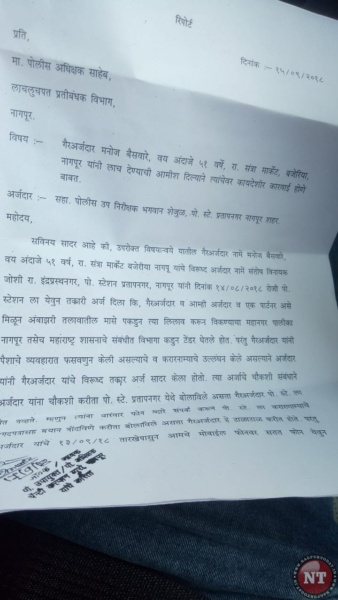 रिपोर्ट
प्रति,
दिनांक :- १५/०९/२०१८
मा. पोलीस अधिक्षक साहेब,
लाचलुचपत प्रतीबंधक विभाग,
नागपूर.
विषय :- गैरअर्जदार मनोज बैसवारे, वय अंदाजे ५१ वर्षे, रा. संत्रा मार्केट, बजेरिया,
नागपूर यांनी लाच देण्याची आमीश दिल्याने त्यांचेवर कायदेशीर कारवाई होणे
बाबत.
अर्जदार :- सहा. पोलीस उप निरीक्षक भगवान शेजुळ, पो. स्टे. प्रतापनगर नागपूर शहर.
महोदय,
सविनय सादर आहे की, उपरोक्त विषयान्वये यातील गैरअर्जदार नामे मनोज बैसवारे,
वय अंदाजे ५१ वर्ष, रा. संत्रा मार्केट बजेरीया नागपूर यांचे विरूध्द अर्जदार नामे संतोष विनायक
जोशी रा. इंद्रप्रस्थनगर, पो. स्टेशन प्रतापनगर, नागपूर यांनी दिनांक १४/०८/२०१८ रोजी पो.
स्टेशन ला येवुन तक्रारी अर्ज दिला कि, गैरअर्जदार व आम्ही अर्जदार व एक पार्टनर असे
मिळून अंबाझरी तलावातील मासे पकडुन त्या लिलाव करून विकण्याचा महानगर पालीका
नागपूर तसेच महाराष्ट्र शासनाचे संबंधीत विभाग कडुन टेंडर घेतले होत. परंतु गैरअर्जदार यांनी
पैशाचे व्यवहारात फसवणुन केली असल्याचे व करारनाम्याचे उल्लघंन केले असल्याने अर्जदार
यांनी गैरअर्जदार यांचे विरूध्द तक्रार अर्ज सादर केला होतो. त्या अर्जाचे चौकशी संबंधाने
अर्जदार यांना चौकशी करीता पो. स्टे. प्रतापनगर येथे बोलाविले असता गैरअर्जदार पो. स्टे. ला
येत नव्हते. म्हणुन त्यांना वारंवार फोन व्दारे संपर्क करून पो. स्टे. ला
बयान नोंदविणे करीता बोलाविले असता गैरअर्जदार हे टाळाटाळ करीत होते. परंतु
अर्जदार यांचे १३/०९/१८ तारखेपासुन आमचे मोबाईल फोनवर सतत फोन येवुन
NT